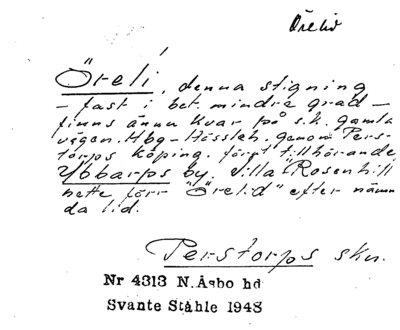 Örelid
Öreli, denna stigning
- fast i bet. mindre grad -
finns ännu kvar på s.k. gamla
vägen. Hbg - Hässleh. genom Pers-
torps köping. förut tillhörande
Ybbarps by. Villa "Rosenhill"
hette förr "Örelid" efter nämn
da lid.
Perstorps skn.
Nr 4313 N. Åsbo hd
Svante Ståhle 1948